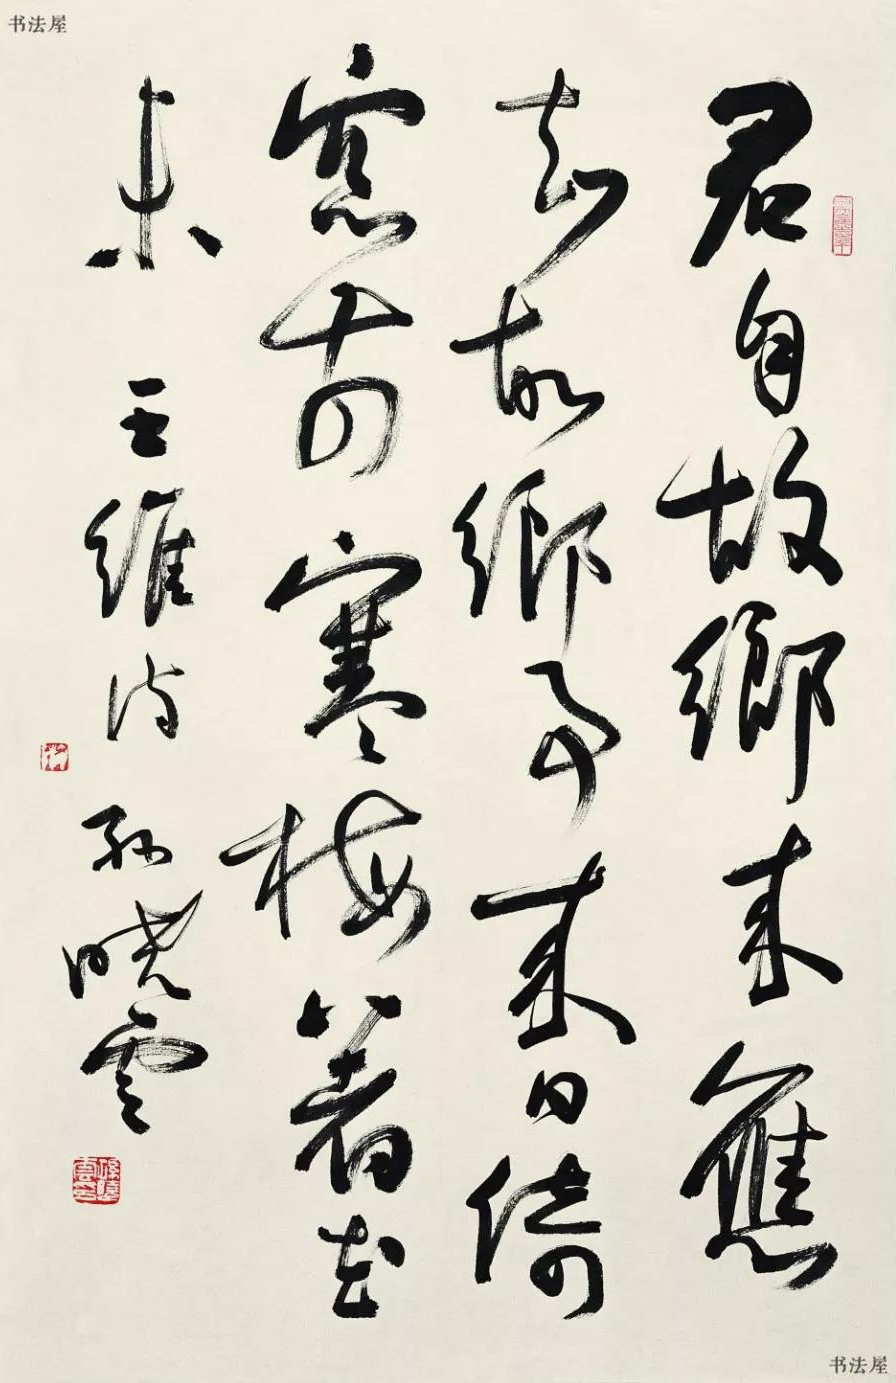 书法屋
君自故鄉来應
知故鄉事来日綺
窓前寒梅著花
未 王維詩 孫曉雲
孫曉雲印
书法屋